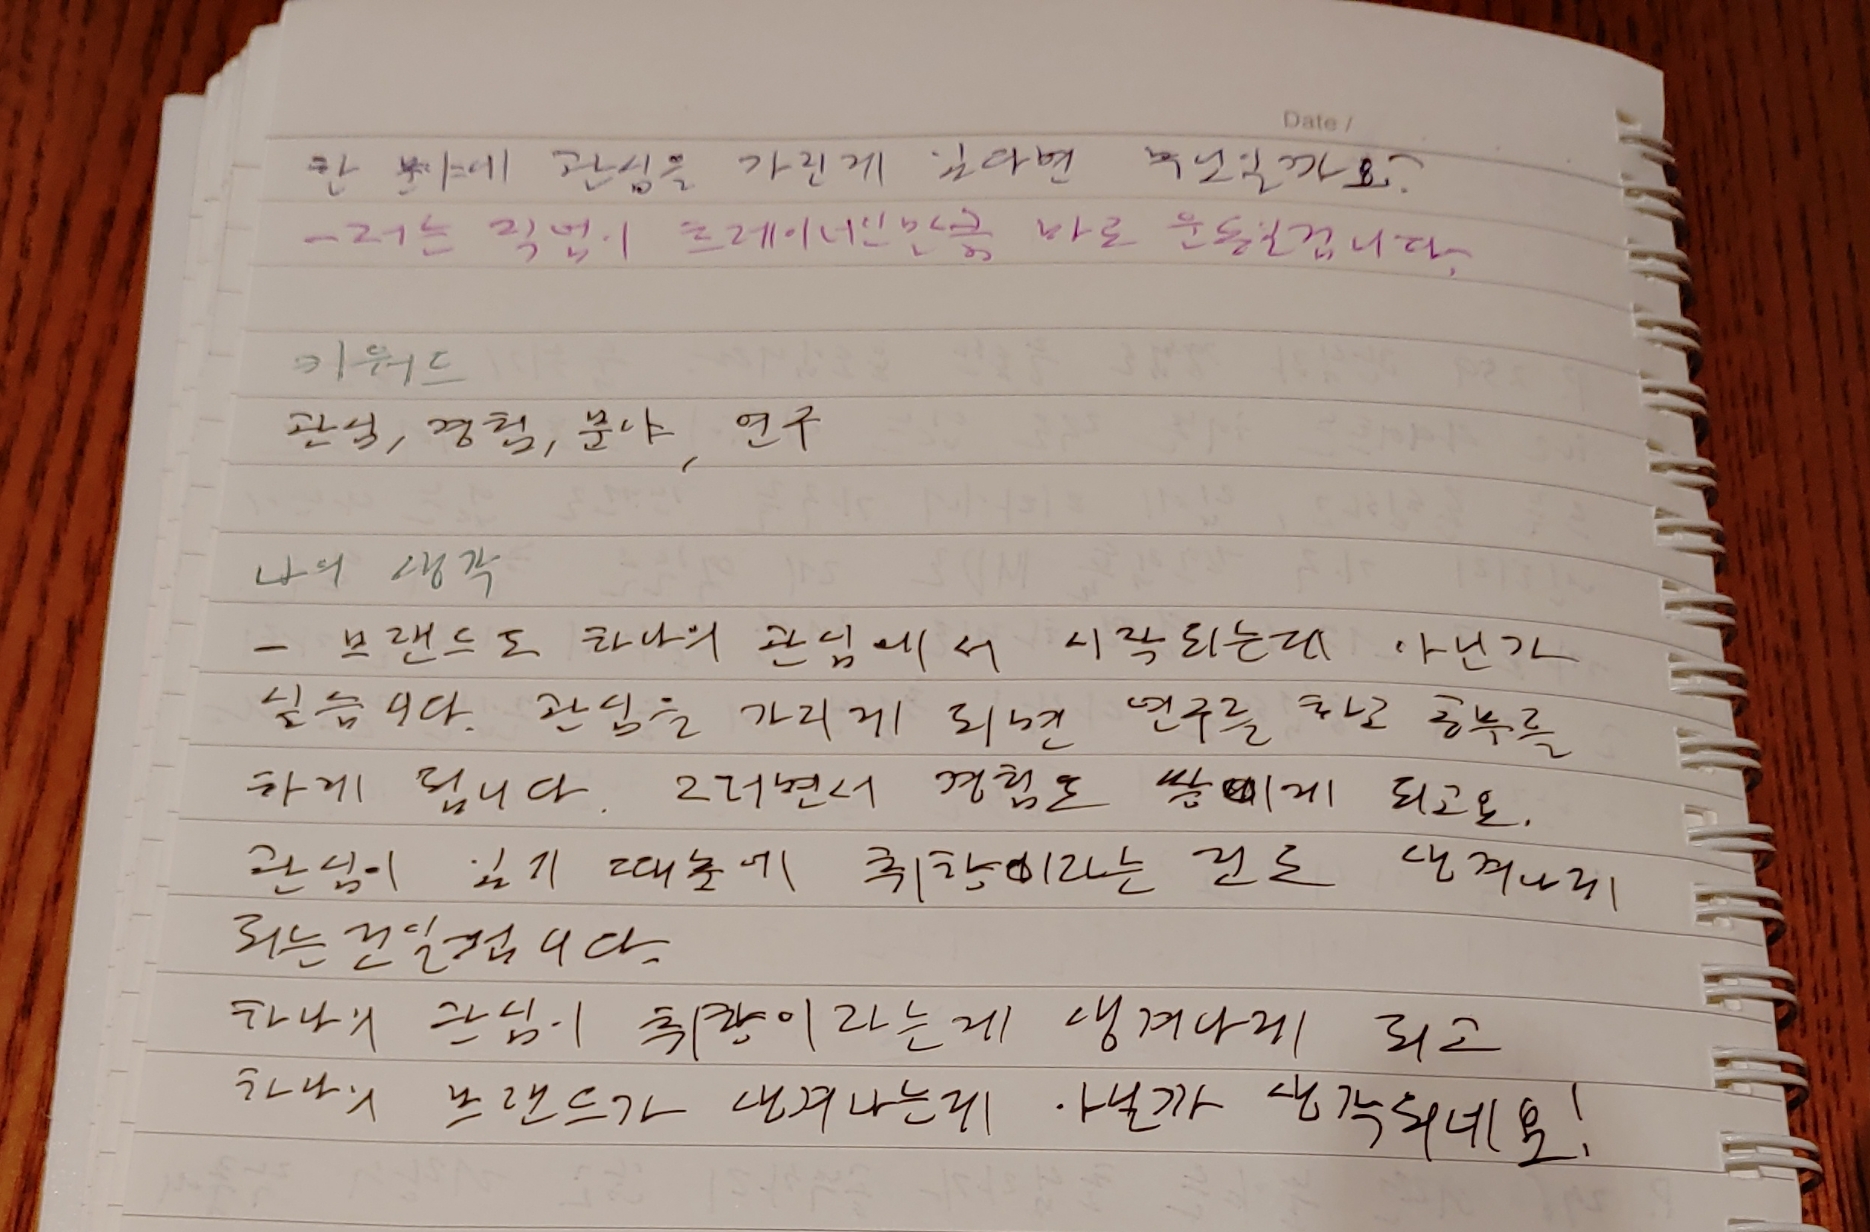 Date /
한 분야에 관심을 가진게 있다면
- 저는 직업이 트레이너인만큼 바로 운동일겁니다.
키워드
관심, 경험, 분야, 연구
나의 생각
- 브랜드도 하나의 관심에서 시작되는게 아닌가
싶습니다. 관심을 가지게 되면 연구를 하고 공부를
하게 됩니다. 그러면서 경험도 쌓이게 되고요.
관심이 있기 때문에 취향이라는 것도 생겨나게
되는 것일겁니다.
하나의 관심이 취향이라는게 생겨나게 되고
하나의 브랜드가 생겨나는게 아닐까 생각되네요!